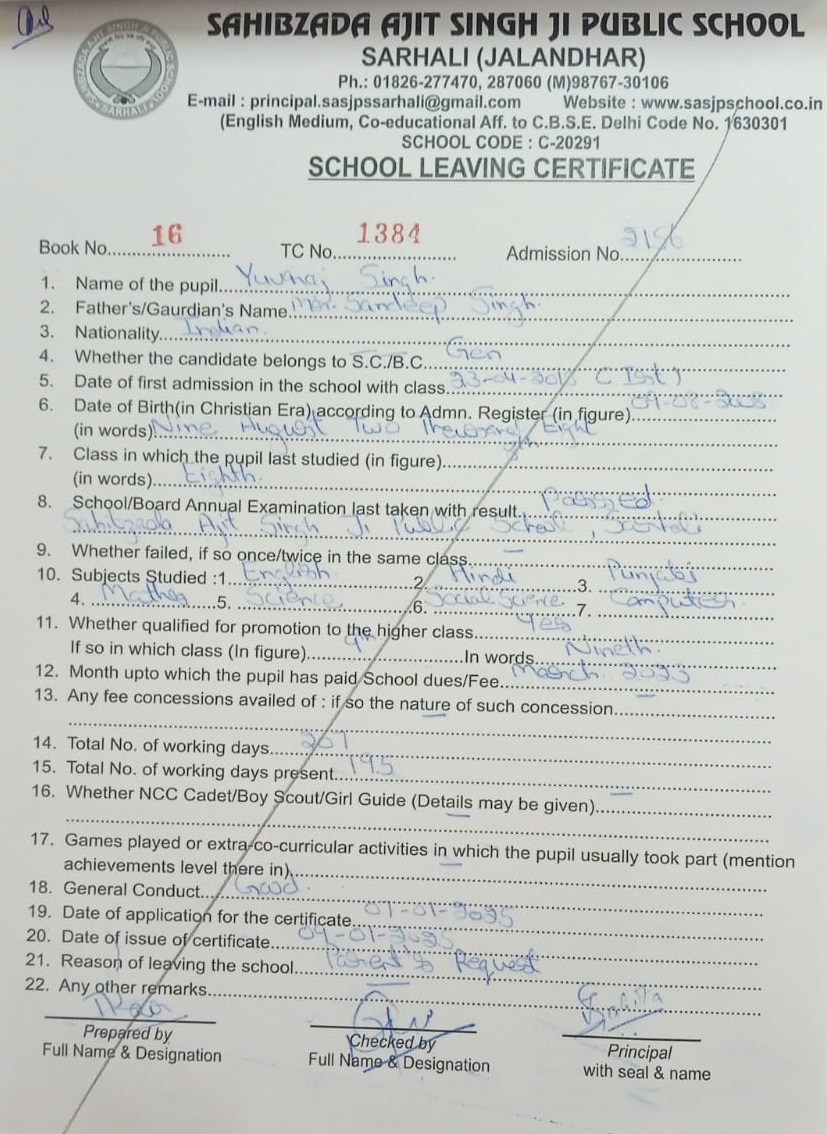 SAHIBZADA AJIT SINGH JI PUBLIC SCHOOL
SARHALI (JALANDHAR)
Ph.: 01826-277470, 287060 (M)98767-30106
E-mail : principal.sasjpssarhali@gmail.com Website : www.sasjpschool.co.in
(English Medium, Co-educational Aff. to C.B.S.E. Delhi Code No. 1630301
SCHOOL CODE : C-20291
SCHOOL LEAVING CERTIFICATE
Book No. 16 TC No. 1384 Admission No. 2156
1. Name of the pupil Yuvraj Singh.
2. Father's/Gaurdian's Name Mr. Sandeep Singh.
3. Nationality Indian.
4. Whether the candidate belongs to S.C./B.C. Gen
5. Date of first admission in the school with class 23-04-2013 (Ist)
6. Date of Birth(in Christian Era) according to Admn. Register (in figure) 09-08-2008
(in words) Nine August Two Thousand Eight
7. Class in which the pupil last studied (in figure) 8th
(in words) Eighth.
8. School/Board Annual Examination last taken with result. Passed.
Sahibzada Ajit Singh Ji Public School, Sarhali
9. Whether failed, if so once/twice in the same class —
10. Subjects Studied :1. English 2. Hindi 3. Punjabi
4. Maths 5. Science 6. Social Science 7. Computer.
11. Whether qualified for promotion to the higher class Yes
If so in which class (In figure) 9th In words Nineth.
12. Month upto which the pupil has paid School dues/Fee March 2023
13. Any fee concessions availed of : if so the nature of such concession —
—
14. Total No. of working days 201
15. Total No. of working days present 195
16. Whether NCC Cadet/Boy Scout/Girl Guide (Details may be given) —
—
17. Games played or extra-co-curricular activities in which the pupil usually took part (mention
achievements level there in) —
18. General Conduct Good.
19. Date of application for the certificate 01-01-2025
20. Date of issue of certificate 04-01-2025
21. Reason of leaving the school Parent's Request
22. Any other remarks —
Prepared by Checked by Principal
Full Name & Designation Full Name & Designation with seal & name